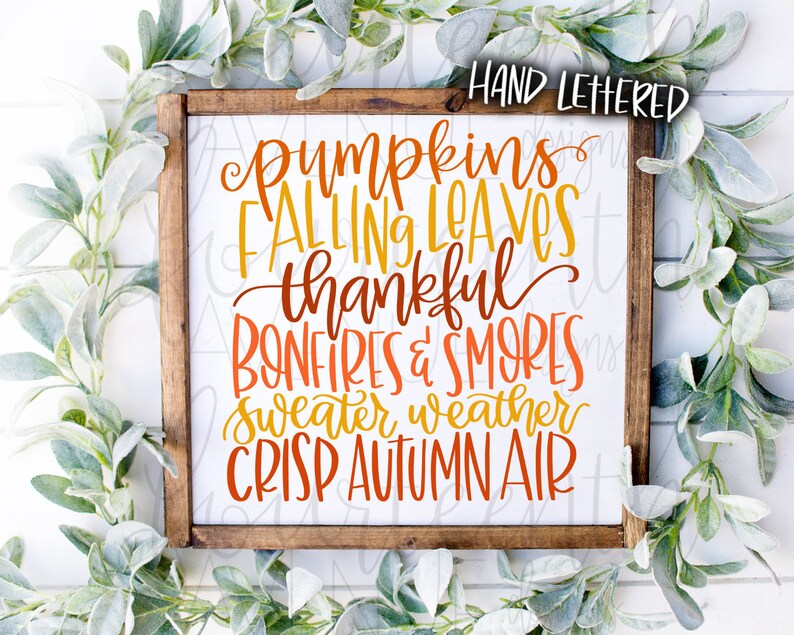 HAND LETTERED
pumpkins
FALLING LEAVES
thankful
BONFIRES & SMORES
sweater weather
CRISP AUTUMN AIR